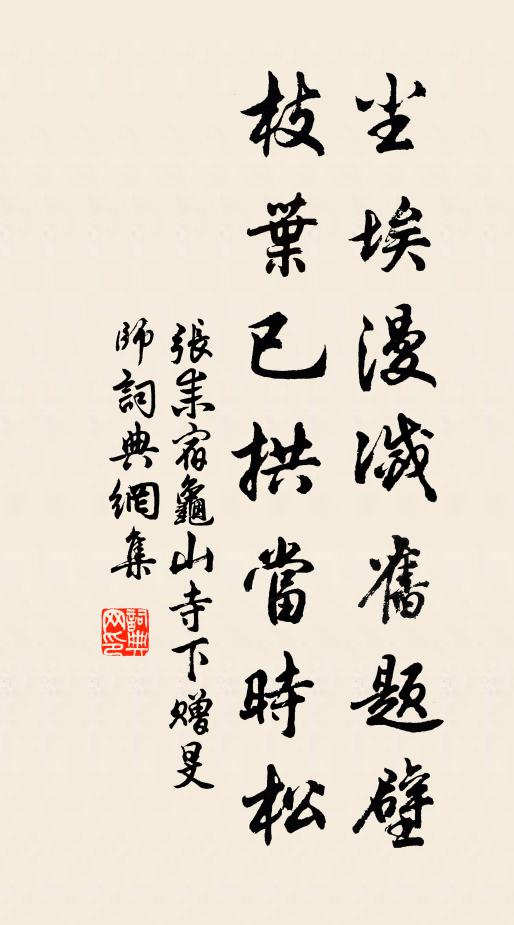 尘埃漫滅舊题壁
枝葉已拱當時松
張耒宿龜山寺下贈旻
師詞典網集
詞典網印